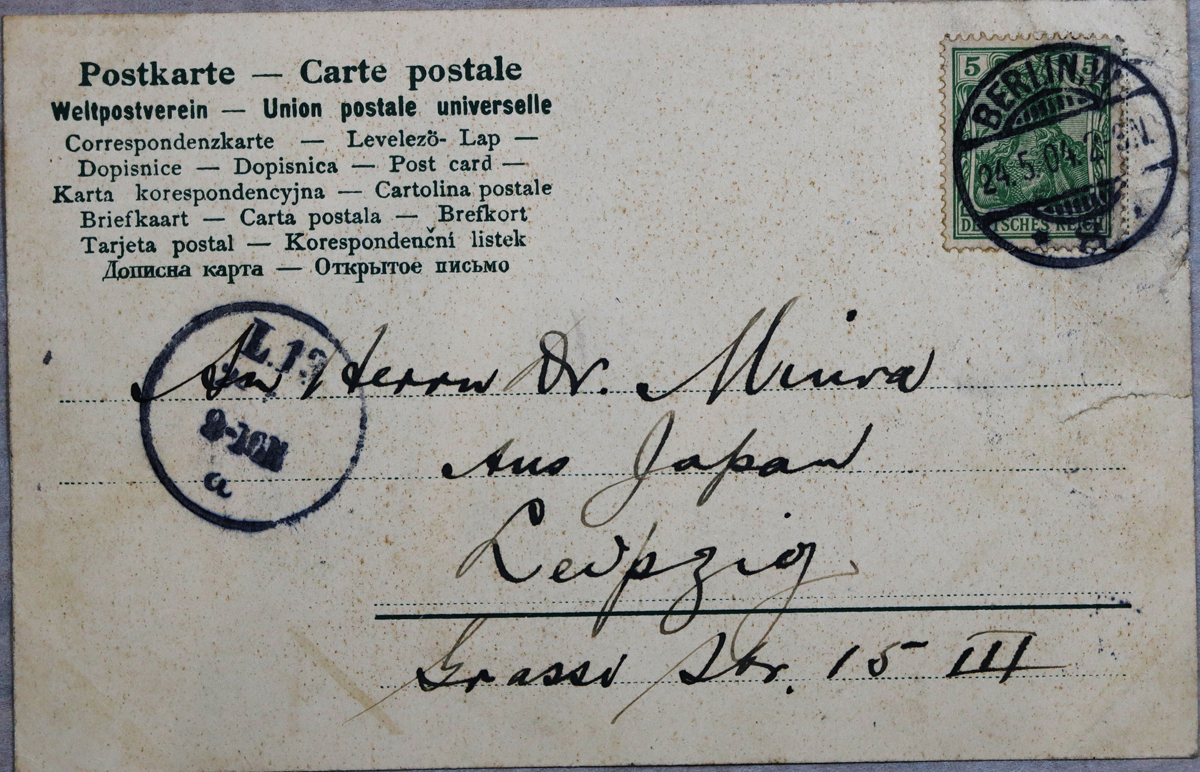 Postkarte — Carte postale
Weltpostverein — Union postale universelle
Correspondenzkarte — Levelezö- Lap —
Dopisnice — Dopisnica — Post card —
Karta korespondencyjna — Cartolina postale
Briefkaart — Carta postala — Brefkort
Tarjeta postal — Korespondenční listek
Дописна карта — Открытое письмо
5 5
BERLIN, W.
24.5.04.
DEUTSCHES REICH
a
L. 13
9-10N
a
An Herrn Dr. Miura
Aus Japan
Leipzig.
Grassi Str. 15 III